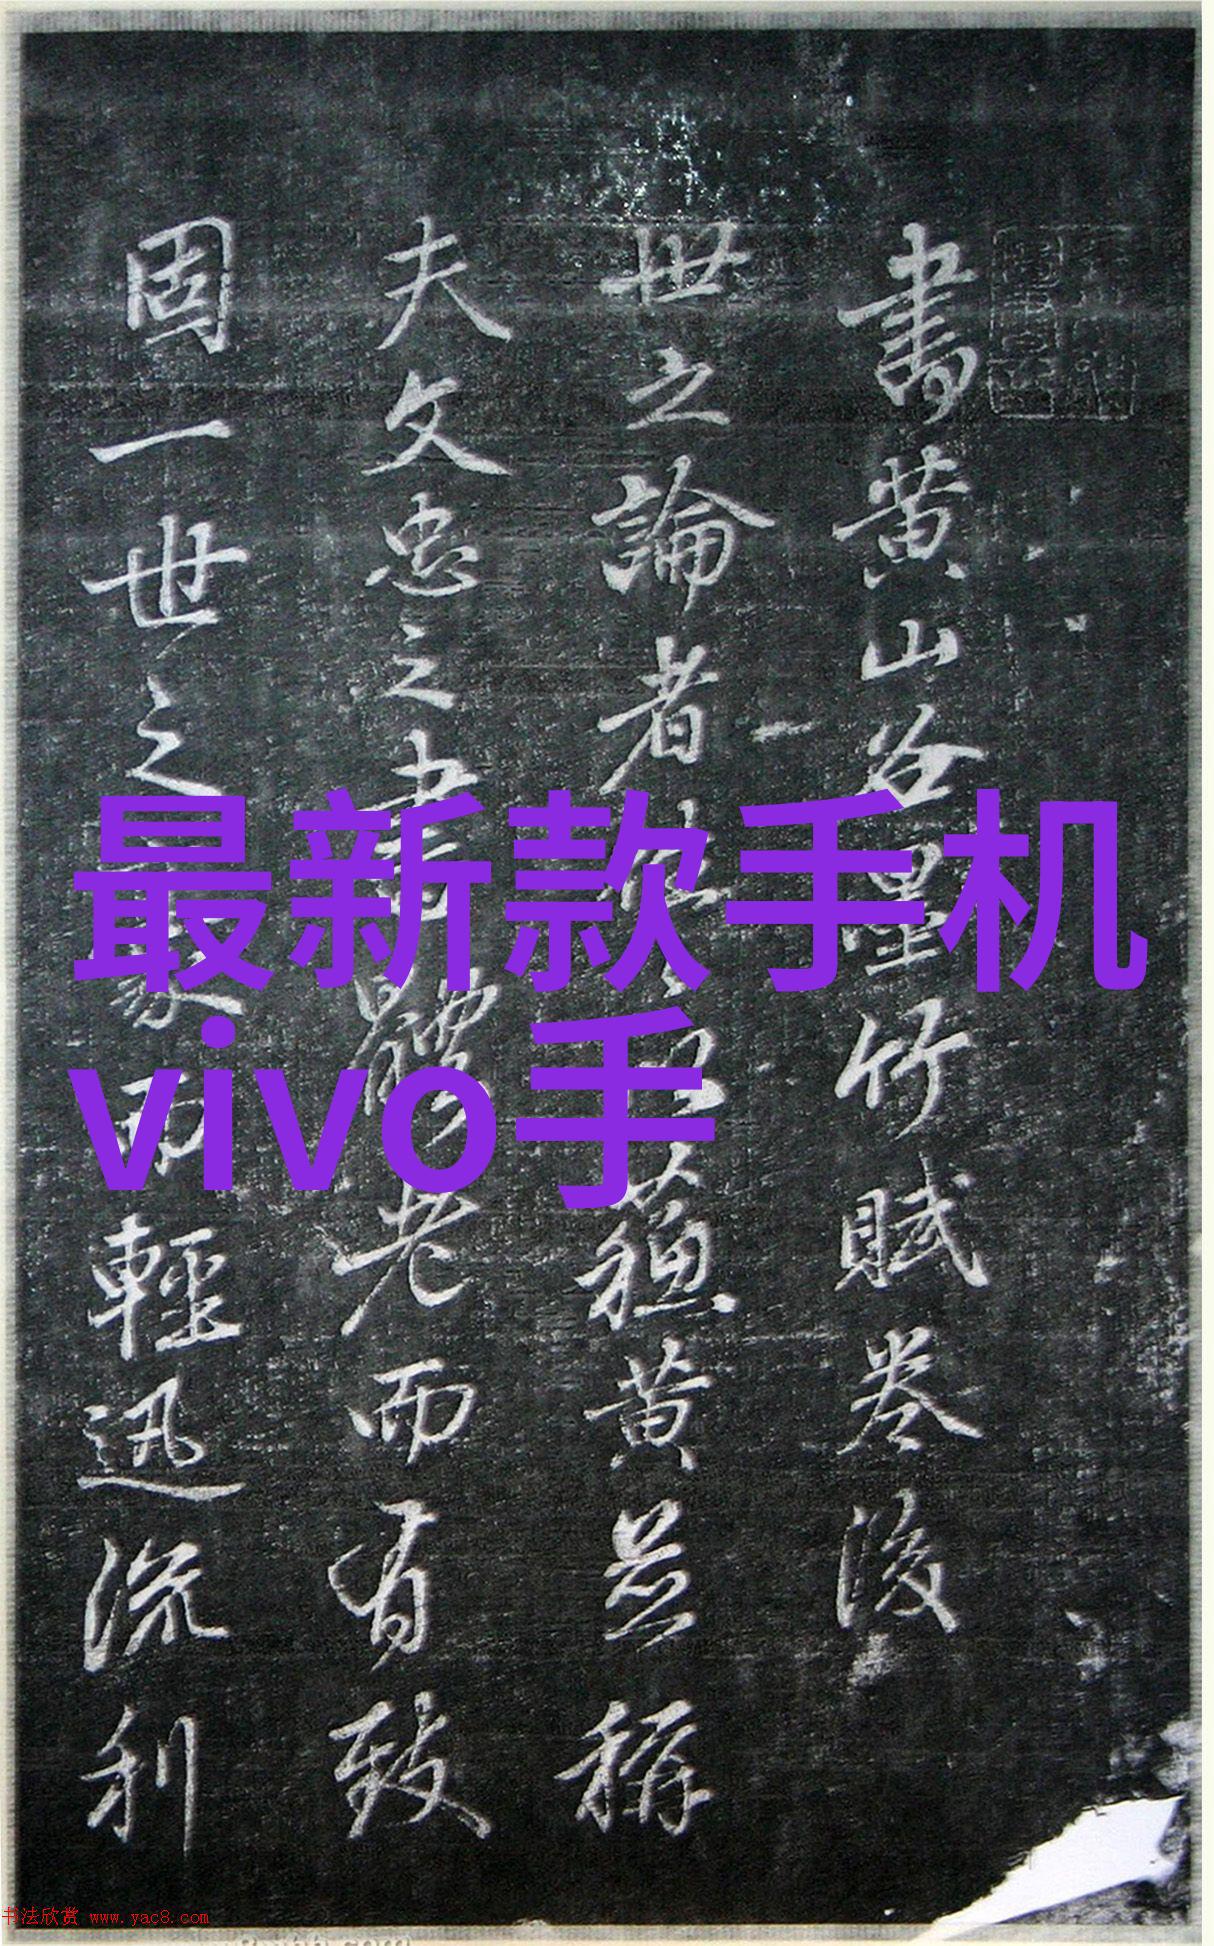 書黄山谷墨竹賦卷後
世之論者蘓黄並稱
夫文忠之書體老而有致
固一世之而輕迅流利
最新款手机
vivo手
书法欣赏 www.yac8.com